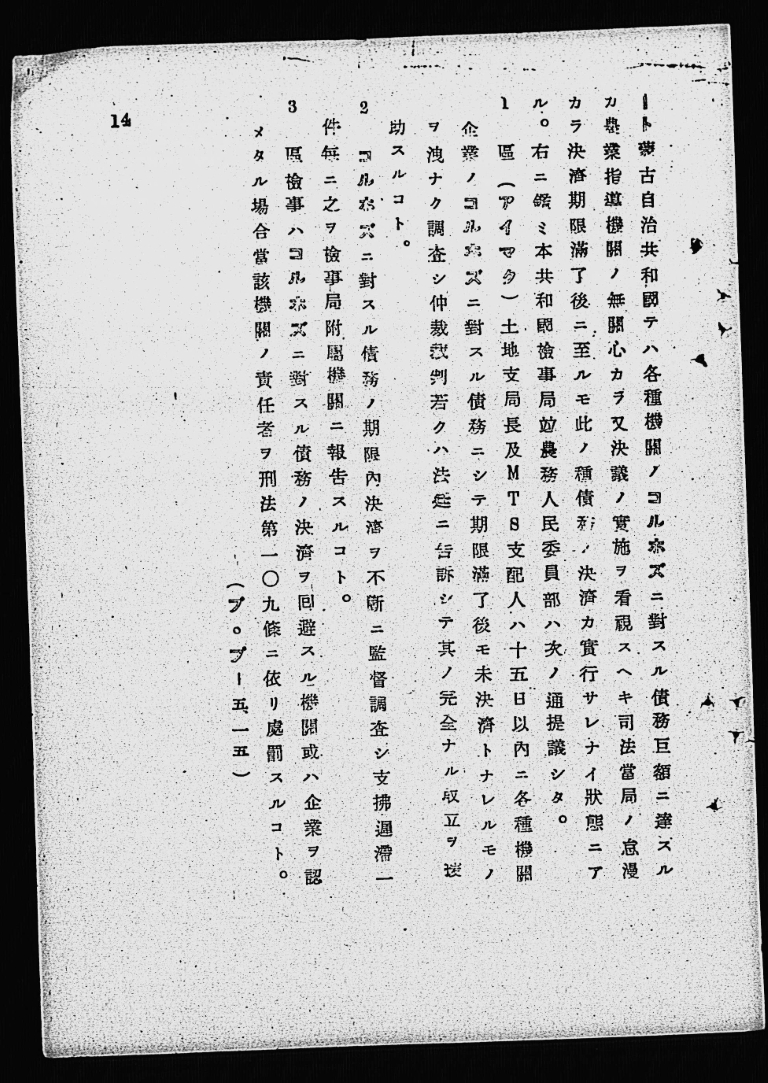 ート蒙古自治共和國テハ各種機關ノコルホズニ對スル債務巨額ニ達スル
カ農業指導機關ノ無關心カラ又決議ノ實施ヲ看視スヘキ司法當局ノ怠漫
カラ決濟期限滿了後ニ至ルモ此ノ種債務ノ決濟カ實行サレナイ狀態ニア
ル。右ニ鑑ミ本共和國檢事局竝農務人民委員部ハ次ノ通提議シタ。
1 區(アイマク)土地支局長及MTS支配人ハ十五日以內ニ各種機關
企業ノコルホズニ對スル債務ニシテ期限滿了後モ未決濟トナレルモノ
ヲ洩ナク調査シ仲裁裁判若クハ法廷ニ告訴シテ其ノ完全ナル取立ヲ援
助スルコト。
2 コルホズニ對スル債務ノ期限內決濟ヲ不斷ニ監督調査シ支拂遲滯一
件每ニ之ヲ檢事局附屬機關ニ報告スルコト。
3 區檢事ハコルホズニ對スル債務ノ決濟ヲ回避スル機關或ハ企業ヲ認
メタル場合當該機關ノ責任者ヲ刑法第一〇九條ニ依リ處罰スルコト。
(ブ。プー五、一五)
14